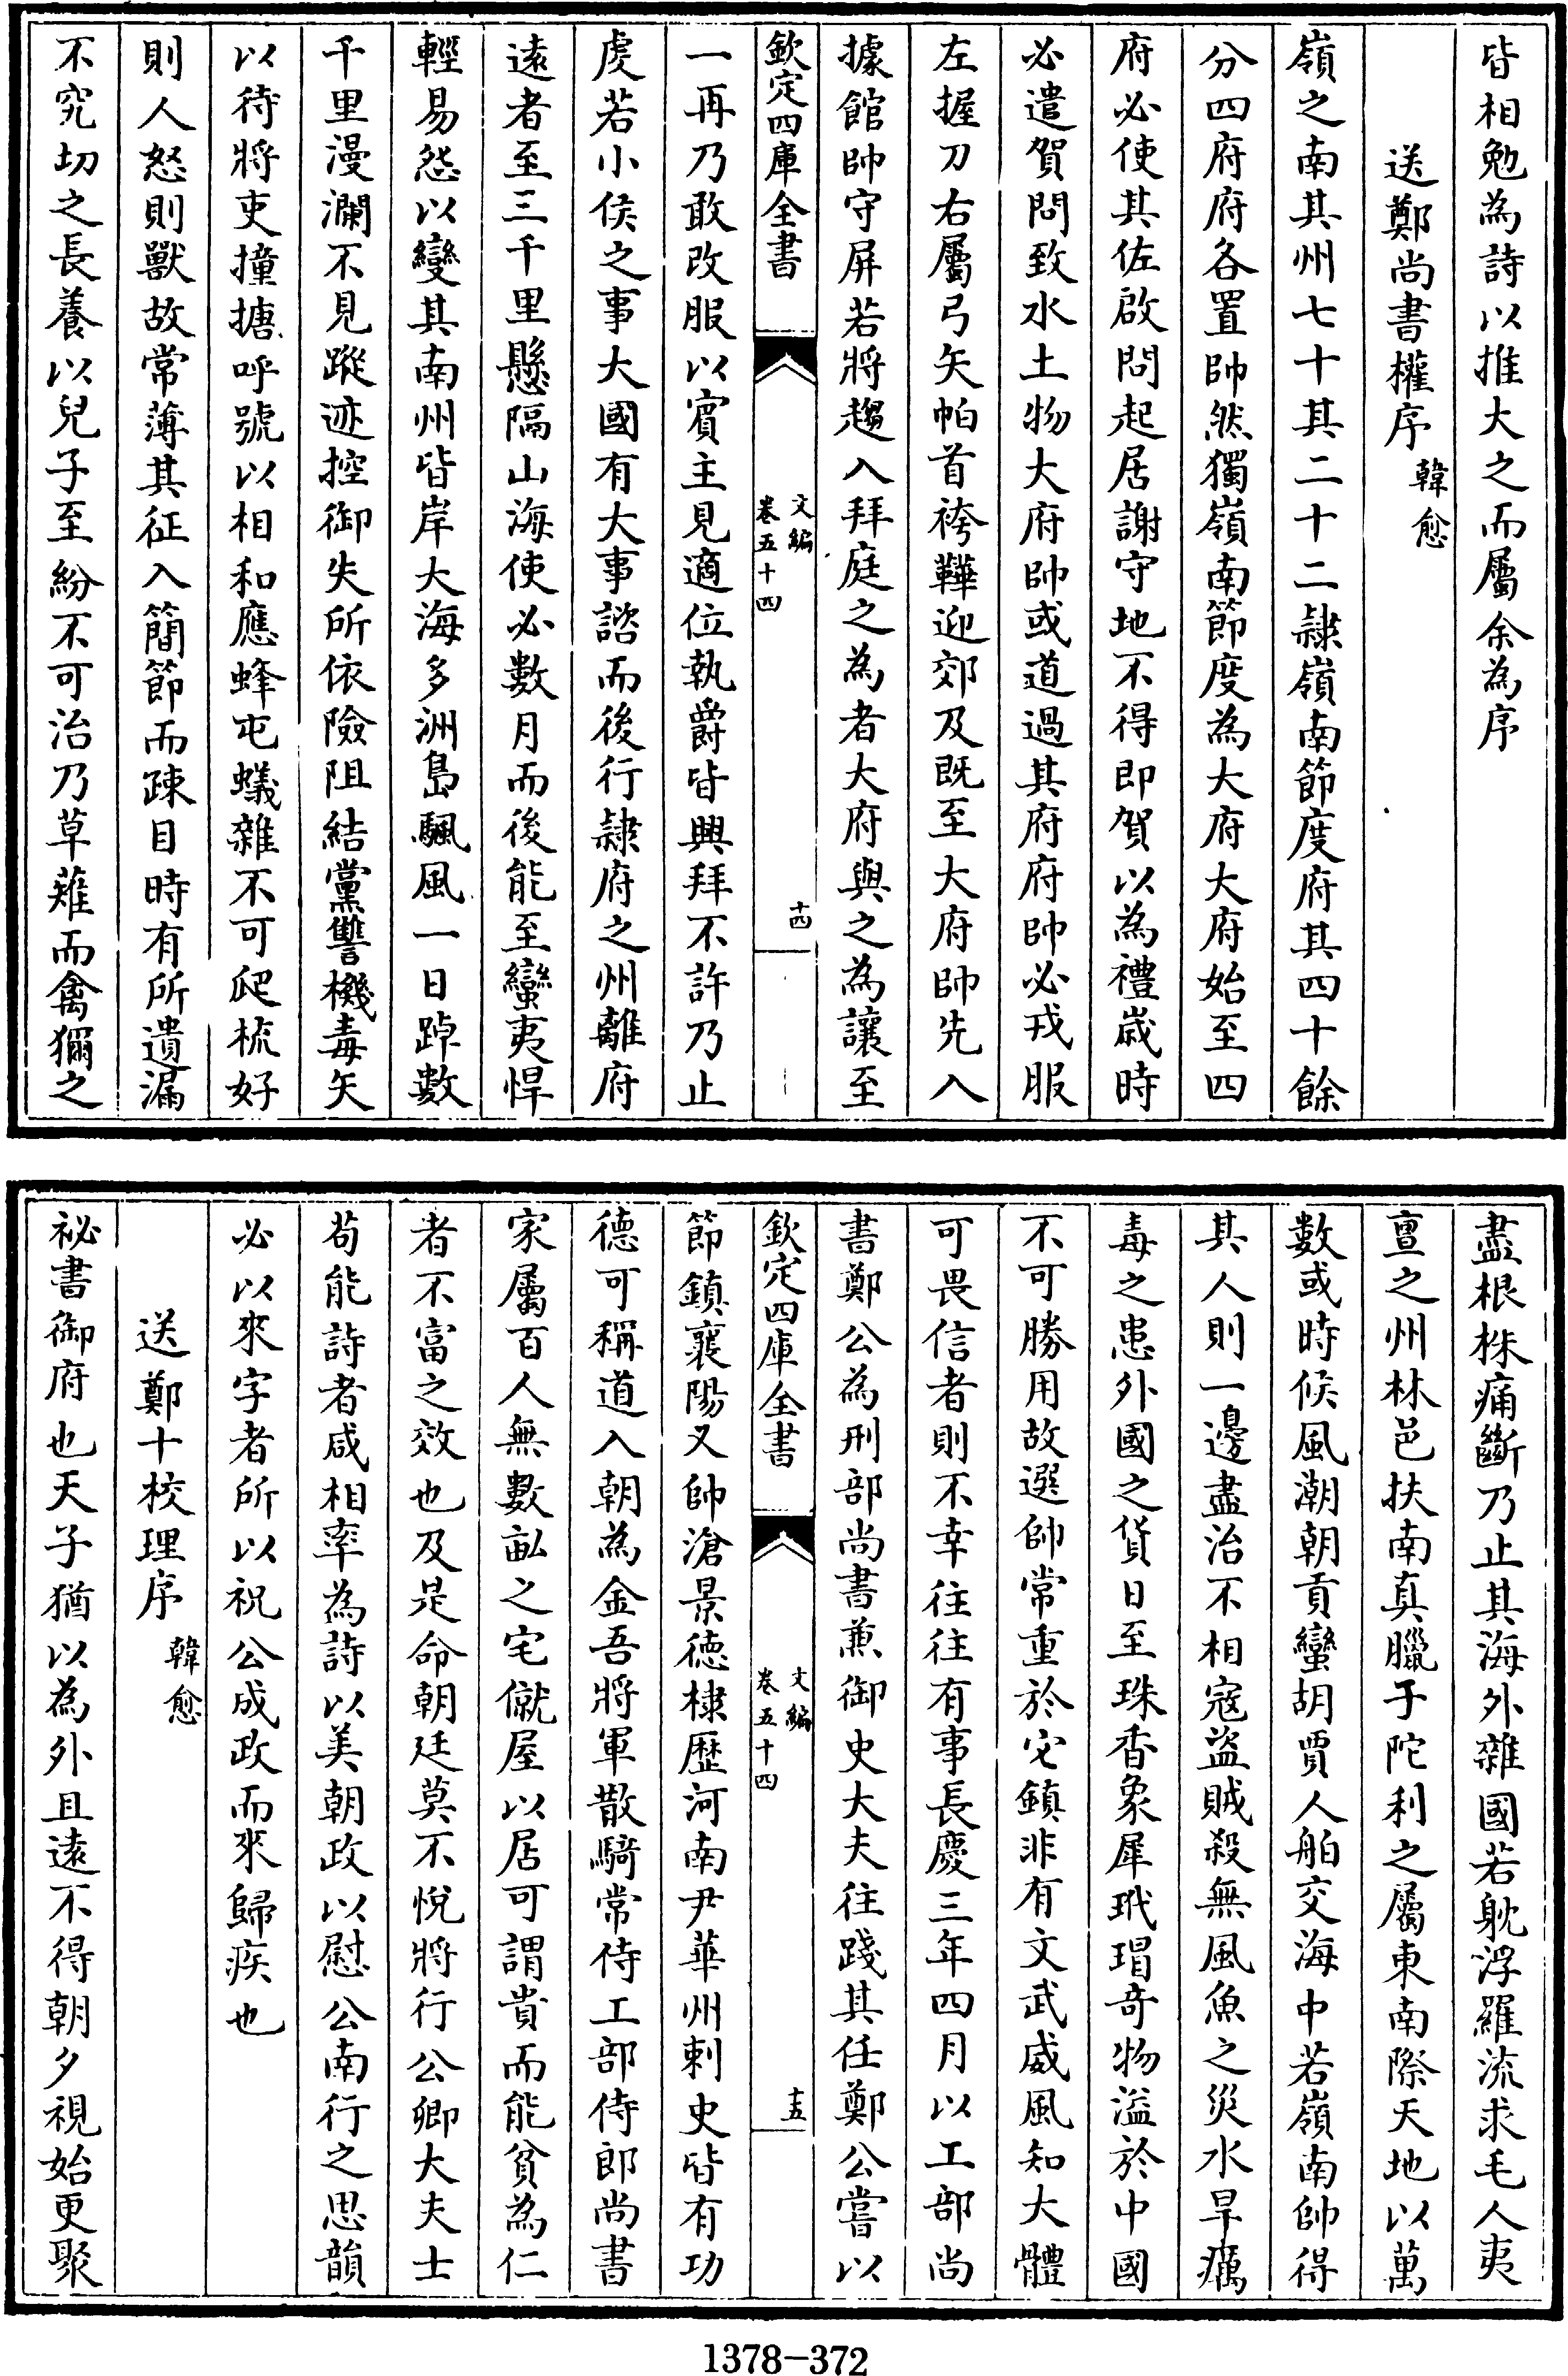 皆相勉為詩以推大之而屬余為序
送鄭尚書權序 韓愈
嶺之南其州七十其二十二隷嶺南節度府其四十餘
分四府府各置帥然獨嶺南節度為大府大府始至四
府必使其佐啟問起居謝守地不得即賀以為禮歲時
必遣賀問致水土物大府帥或道過其府府帥必戎服
左握刀右屬弓矢帕首袴鞾迎郊及既至大府帥先入
據館帥守屏若將趨入拜庭之為者大府與之為讓至
欽定四庫全書 文編 卷五十四 十四
一再乃敢改服以賓主見適位執爵皆興拜不許乃止
虔若小侯之事大國有大事諮而後行隷府之州離府
遠者至三千里懸隔山海使必數月而後能至蠻夷悍
輕易怨以變其南州皆岸大海多洲島颿風一日踔數
千里漫瀾不見蹤迹控御失所依險阻結黨讐機毒矢
以待將吏撞搪呼號以相和應蜂屯蟻雜不可爬梳好
則人怒則獸故常薄其征入簡節而疎目時有所遺漏
不究切之長養以兒子至紛不可治乃草薙而禽獮之
盡根株痛斷乃止其海外雜國若躭浮羅流求毛人夷
亶之州林邑扶南真臘于陀利之屬東南際天地以萬
數或時候風潮朝貢蠻胡賈人舶交海中若嶺南帥得
其人則一邊盡治不相寇盜賊殺無風魚之災水旱癘
毒之患外國之貨日至珠香象犀玳瑁奇物溢於中國
不可勝用故選帥常重於它鎮非有文武威風知大體
可畏信者則不幸往往有事長慶三年四月以工部尚
書鄭公為刑部尚書兼御史大夫往踐其任鄭公嘗以
欽定四庫全書 文編 卷五十四 十五
節鎮襄陽又帥滄景德棣歷河南尹華州刺史皆有功
德可稱道入朝為金吾將軍散騎常侍工部侍郎尚書
家屬百人無數畝之宅僦屋以居可謂貴而能貧為仁
者不富之效也及是命朝廷莫不悅將行公卿大夫士
茍能詩者咸相率為詩以美朝政以慰公南行之思韻
必以來字者所以祝公成政而來歸疾也
送鄭十校理序 韓愈
祕書御府也天子猶以為外且遠不得朝夕視始更聚
1378-372